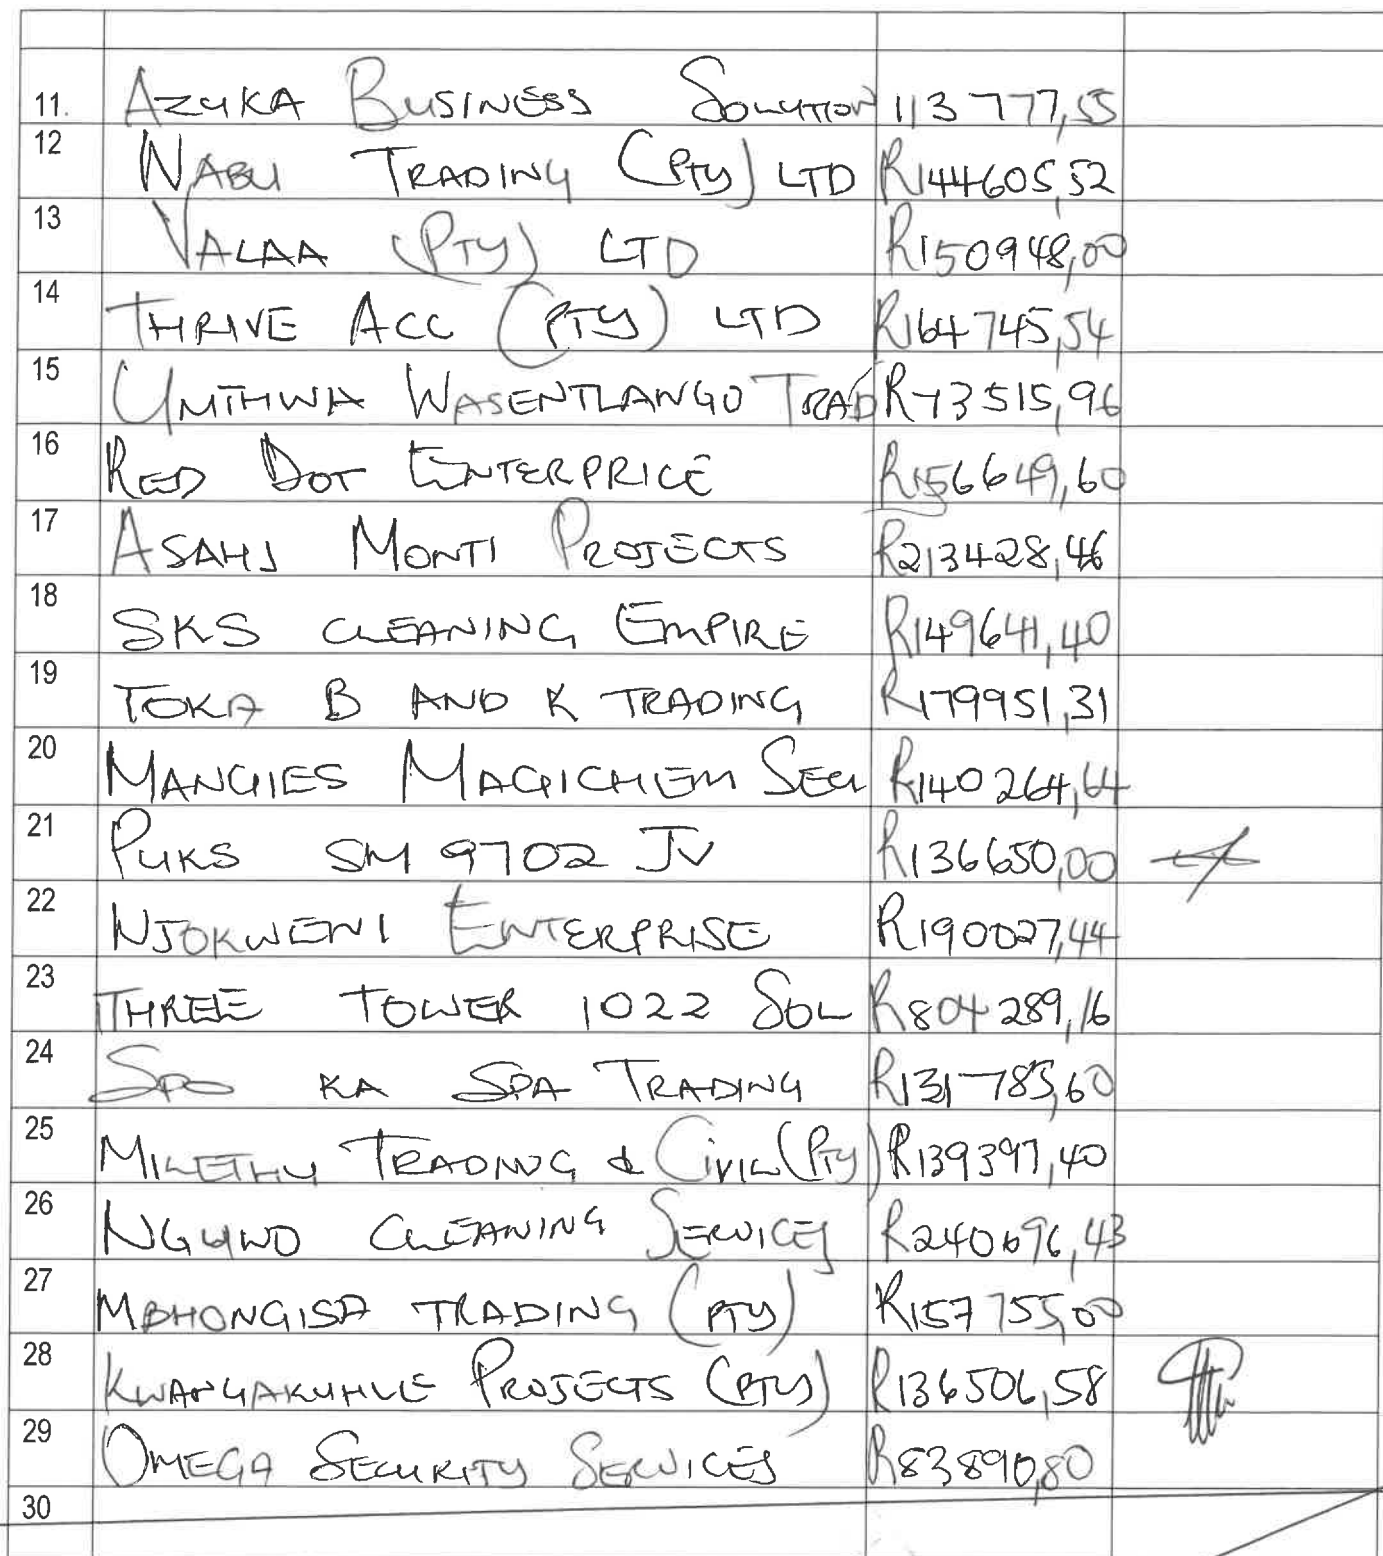 11. AZUKA BUSINESS SOLUTION 113 777,55
12 NABU TRADING (PTY) LTD R144605,52
13 VALAA (PTY) LTD R150948,00
14 THRIVE ACC (PTY) LTD R164745,54
15 UMTHWA WASENTLANGO TRAD R73515,96
16 RED DOT ENTERPRICE R156649,60
17 ASAHI MONTI PROJECTS R213428,46
18 SKS CLEANING EMPIRE R149641,40
19 TOKA B AND K TRADING R179951,31
20 MANGIES MAGICHEM SECU R140264,64
21 PUKS SM 9702 JV R136650,00
22 NJOKWENI ENTERPRISE R190027,44
23 THREE TOWER 1022 SOL R804289,16
24 SPO KA SPA TRADING R131785,60
25 MILETHU TRADING & CIVIL (PTY) R139397,40
26 CLEANING SERVICES R240696,43
27 MBHONGISA TRADING (PTY) R157755,00
28 KWANGAKUHLE PROJECTS (PTY) R136506,58
29 OMEGA SECURITY SERVICES R83890,80
30